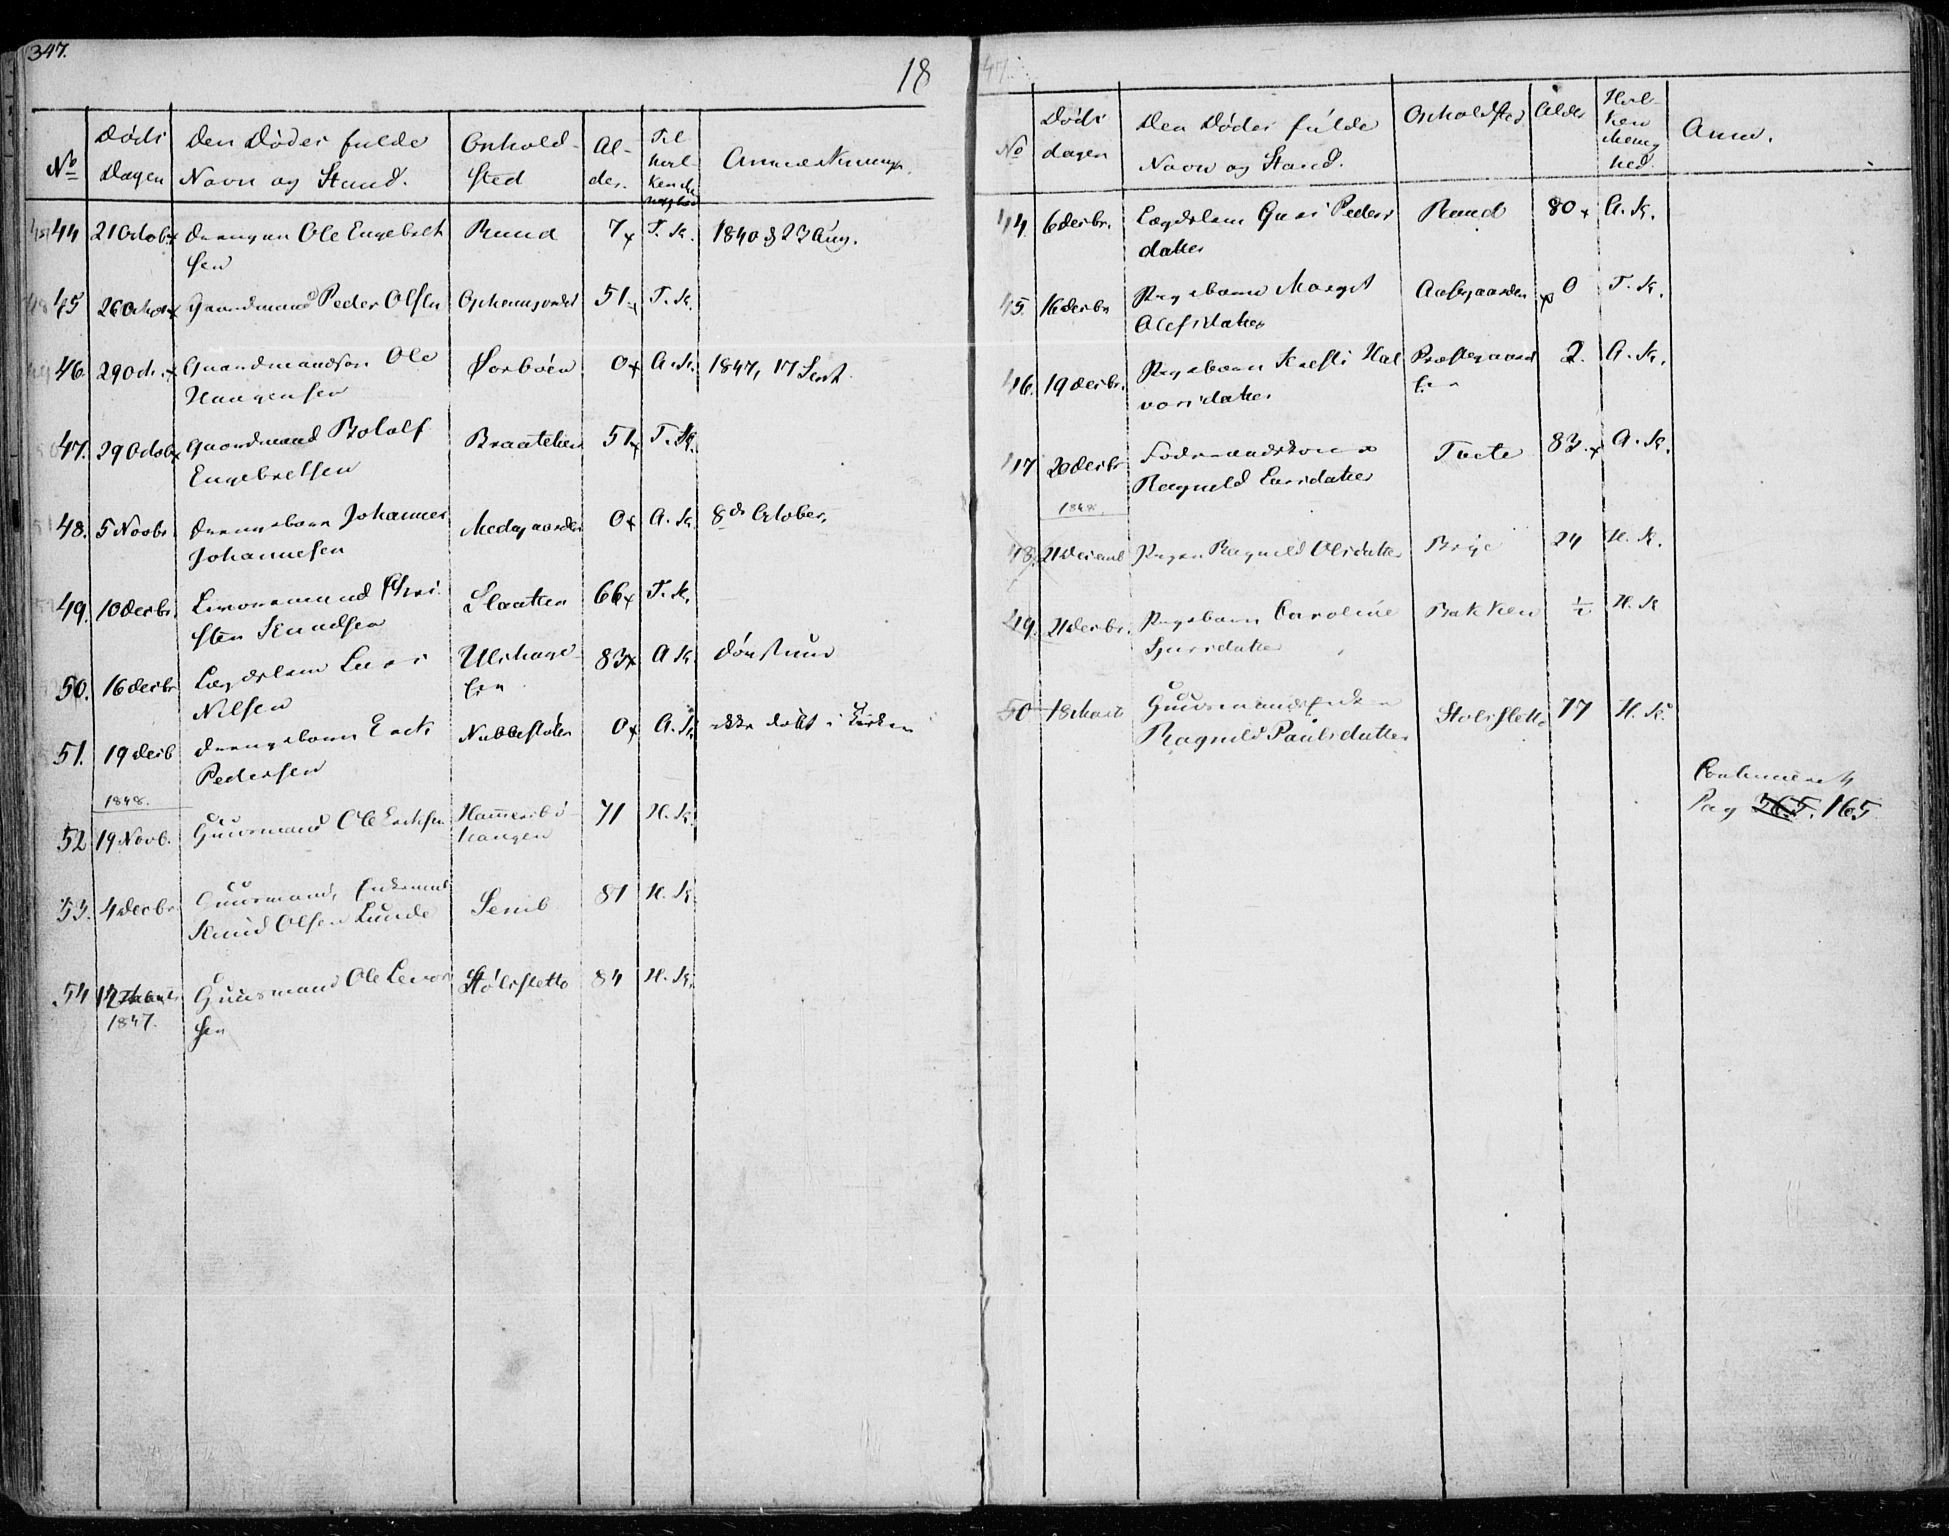 347.
18 47.
No
Døds
Dagen
Den Dødes fulde
Navn og Stand.
Ophold-
sted
Al-
der.
Til
hvil-
Anmærkninger.
44 21 Octob. Drengen Ole Engebret
sen
Ruud 7 T. K. 1840 d 23 Aug.
45 26 Octob. Gaardmand Peder Olsen 51 T. K.
46. 29 Oct. Gaardmandsøn Ole
Haagensen
Sorbøen 0 A. K. 1847, 17 Sept.
47. 29 Octob. Gaardmand Botolf
Engebretsen
Braatelien 51 T. K.
48. 5 Novbr. Drengebarn Johannes
Johannesen
Medgaarden 0 A. K. 8de October.
49. 10 Decbr. Chri
sten Knudsen
Slaatten 66 T. K.
50. 16 Decbr. Lægdslem Lars
Nilsen
Ulshagel
en
83 A. K. Dønstuns
51. 19 Decb Drengebarn Erik
Pedersen
Nubbesloten 0 A. K. ikke døbt i Kirken
1848.
52 19 Novb. Huusmand Ole Eriksen Hammersbø-
haugen
71 H. K.
53. 4 Decbr. Huusmands Enkemand
Knud Olsen Lunde
81 H. K.
54 12
1847.
Huusmand Ole Levor
sen
Stølsletto 84 H. K.
No
Døds
dagen
Den Dødes fulde
Navn og Stand.
Opholdsted Alder
Hvil-
ken
Menig
hed
Anm.
44. 6 Decbr. Lægdslem Guri Peders
datter
Ruud 80 A. K.
45. 16 Decbr. Pigebarn Margit
Olefsdatter
Aasgaarden 0 T. K.
46. 19 Decbr. Pigebarn Kristi Hal
vorsdatter
Præstegaard
en
2. A. K.
47 20 Decbr Føderaadskone
Ragnild Larsdatter
Tuete 83. A. K.
1848.
48. 21 Decemb Pigen Ragnild Olsdatter Brye 24 H. K.
49. 21 Decbr. Pigebarn Caroline
Sjursdatter
Bakken H. K
50 18 Marts Huusmandsenke
Ragnild Paulsdatter
Stølsletto 77 H. K.
Continueret
Pag 365. 165